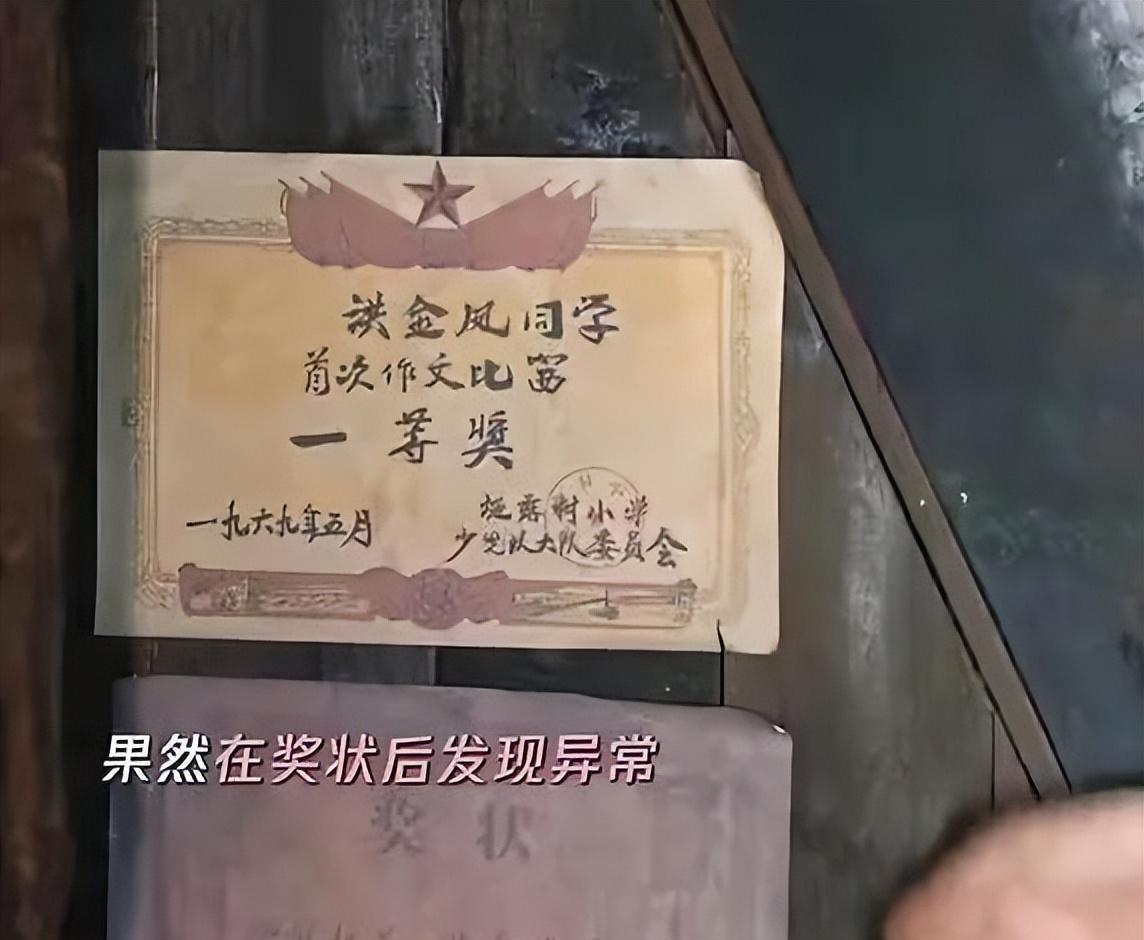 洪金凤同学
首次作文比赛
一等奖
一九六九年五月
村小学
少先队大队委员会
果然在奖状后发现异常
奖状